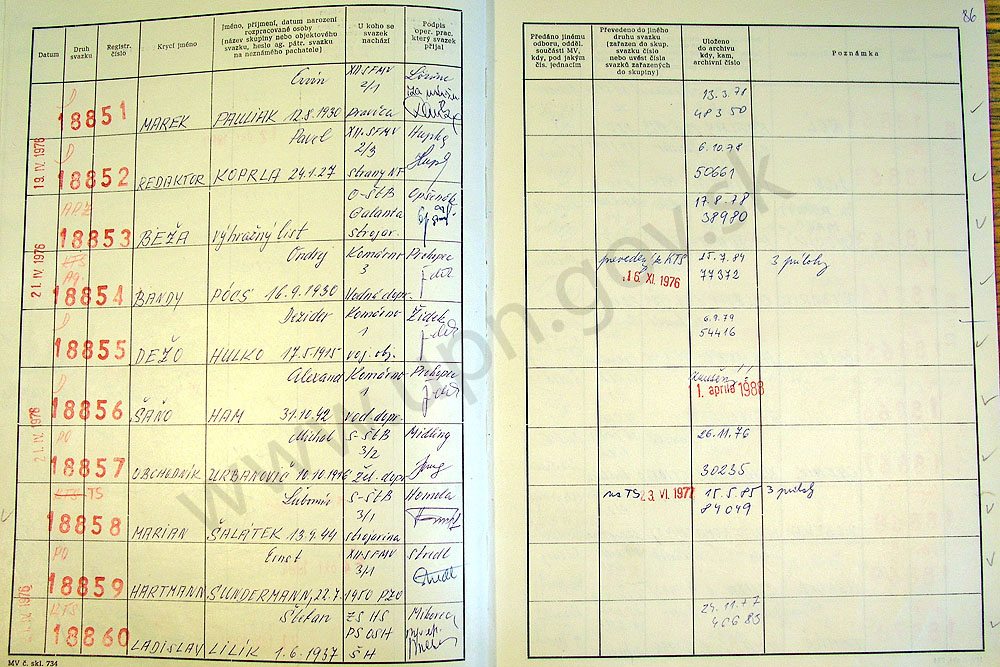 86
Datum
Druh svazku
Registr. číslo
Krycí jméno
Jméno, příjmení, datum narození
rozpracované osoby
(název skupiny nebo objektového
svazku, heslo ag. pátr. svazku
na neznámého pachatele)
U koho se
svazek
nachází
Podpis
oper. prac.
který svazek
přijal
Předáno jinému
odboru, odděl.
součásti MV,
kdy, pod jakým
čís. jednacím
Převedeno do jiného
druhu svazku
(zařazen do skup.
svazku číslo
nebo uvést čísla
svazků zařazených
do skupiny)
Uloženo
do archivu
kdy, kam,
archivní číslo
Poznámka
XII.SFMV
2/1
18851 MAREK PAULIAK 12.8.1930
13.3.78
48350
19. IV. 1976
Pavel XII.SFMV Hupka
2/3
18852 REDAKTOR KOPRLA 24.1.27 strany NF
6.10.78
50661
APZ
O-ŠtB
Galanta
18853 BEŽA výhražný list strojár.
17.8.78
38980
21. IV. 1976
KTS
Ag.
Ondrej Komárno Prikopce
3
18854 BANDY PÓCS 16.9.1930 Vodná dopr.
prevedený z KTS
16. XI. 1976
25.7.84
77372
3 prílohy
Dezider Komárno Židek
1
18855 DEŽO HULKO 17.5.1915 voj. obj.
6.9.79
54416
Komárno Prikopce
1
18856 ŠAŇO HAM 31.10.42 vod. dopr.
1. apríla 1988
21. IV. 1976
PO
Michal S-ŠtB Midling
3/2
18857 OBCHODNÍK URBANOVIČ 10.10.1916 Žel. dopr.
26.11.76
30235
KTS TS
Ľubomír S-ŠtB Homola
3/1
18858 MARIAN ŠALÁTEK 13.9.44 strojárina
na TS 23. VI. 1977
15.5.85
84049
3 prílohy
PO
Ernst XII.SFMV Stredl
3/1
18859 HARTMANN SUNDERMANN, 22.7. 1950 PZO
KTS
Štefan ZS HS
PS OSH
18860 LADISLAV LILÍK 1.6.1937 ŠH
24.11.77
40685
MV č. skl. 734
www.upn.gov.sk